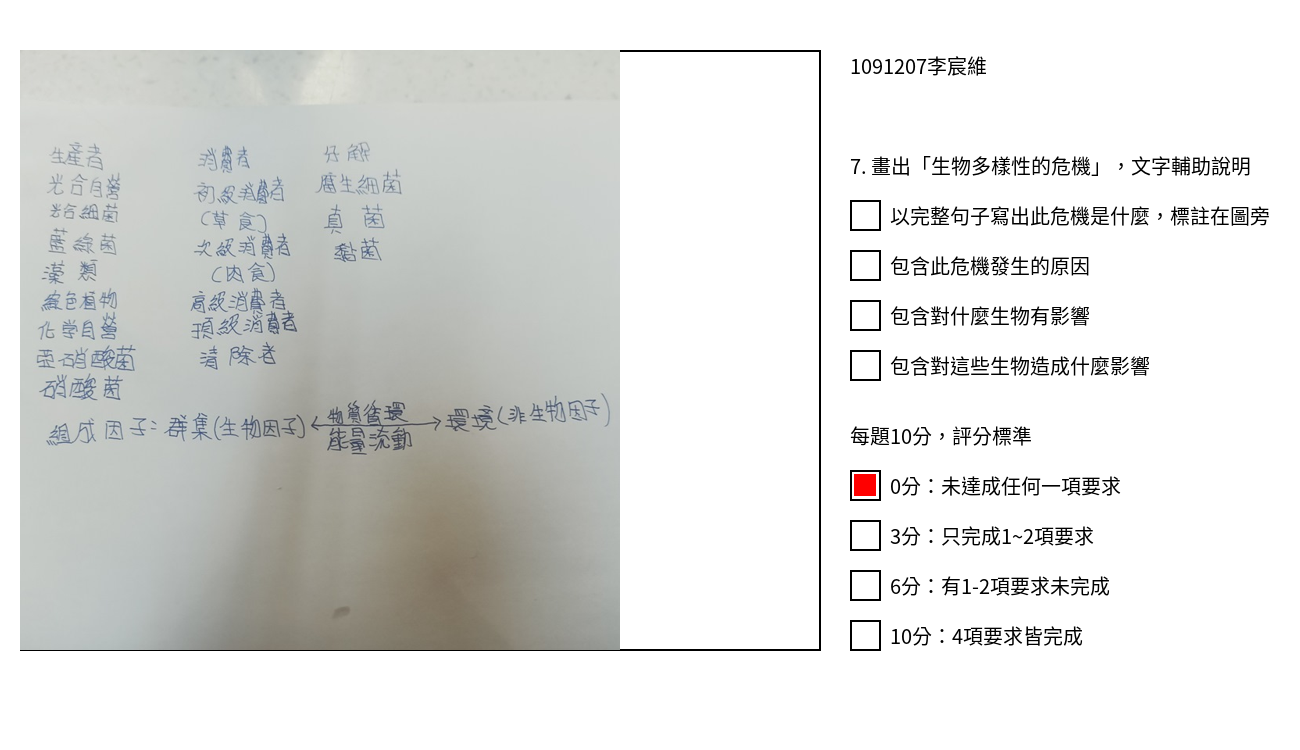 生產者
光合自營
光合細菌
藍綠菌
藻類
綠色植物
化学自營
亜硝酸菌
硝酸菌
消費者
初級消費者
(草食)
次級消費者
(肉食)
高級消費者
頂級消費者
清除者
分解
腐生細菌
真菌
黏菌
組成因子:群集(生物因子)
物質循環
能量流動
環境(非生物因子)
1091207李宸維
7. 畫出「生物多樣性的危機」，文字輔助說明
以完整句子寫出此危機是什麼，標註在圖旁
包含此危機發生的原因
包含對什麼生物有影響
包含對這些生物造成什麼影響
每題10分，評分標準
0分：未達成任何一項要求
3分：只完成1~2項要求
6分：有1-2項要求未完成
10分：4項要求皆完成